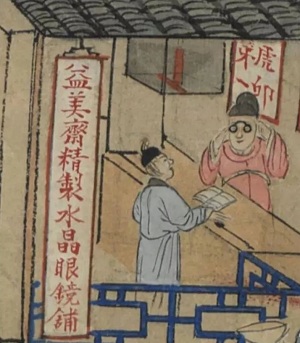 益美齋精製水晶眼鏡舖